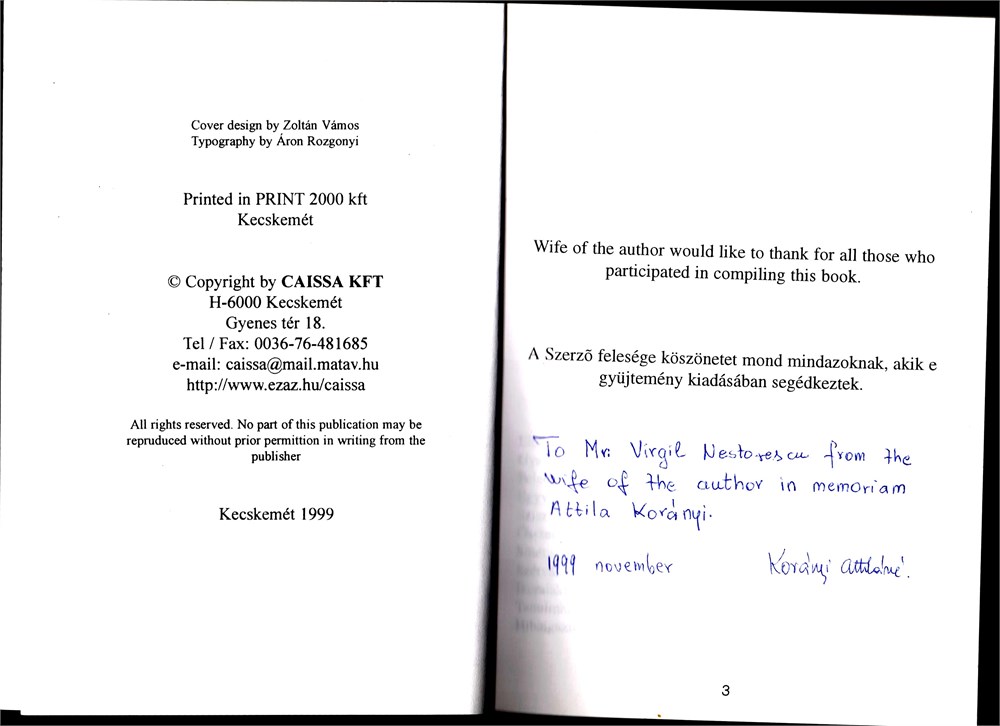 Cover design by Zoltán Vámos
Typography by Áron Rozgonyi
Printed in PRINT 2000 kft
Kecskemét
© Copyright by CAISSA KFT
H-6000 Kecskemét
Gyenes tér 18.
Tel / Fax: 0036-76-481685
e-mail: caissa@mail.matav.hu
http://www.ezaz.hu/caissa
All rights reserved. No part of this publication may be
repruduced without prior permittion in writing from the
publisher
Kecskemét 1999
Wife of the author would like to thank for all those who
participated in compiling this book.
A Szerzõ felesége köszönetet mond mindazoknak, akik e
gyüjtemény kiadásában segédkeztek.
To Mr. Virgil Nestorescu from the
wife of the author in memoriam
Attila Korányi.
1999 november Korányi Attiláné.
3